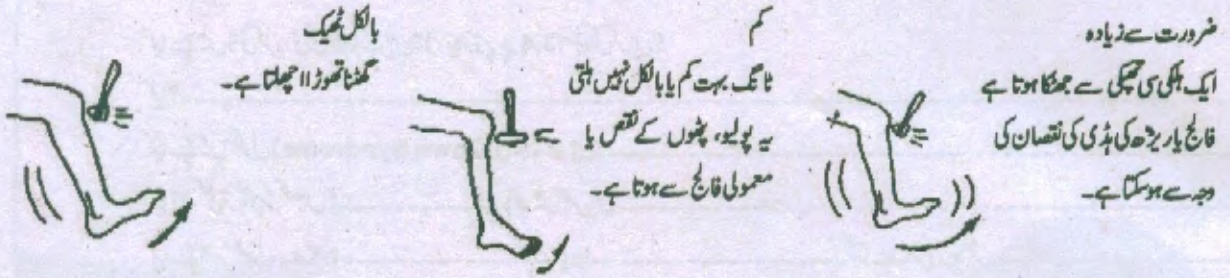 ضرورت سے زیادہ
ایک ہلکی سی تھپکی سے جھٹکا ہوتا ہے
فالج یا ریڑھ کی ہڈی کی نقصان کی
وجہ سے ہوسکتا ہے۔
کم
ٹانگ بہت کم یا بالکل نہیں ہلتی
یہ پولیو، پٹھوں کے نقص یا
معمولی فالج سے ہوتا ہے۔
بالکل ٹھیک
گھٹنا تھوڑا اچھلتا ہے۔